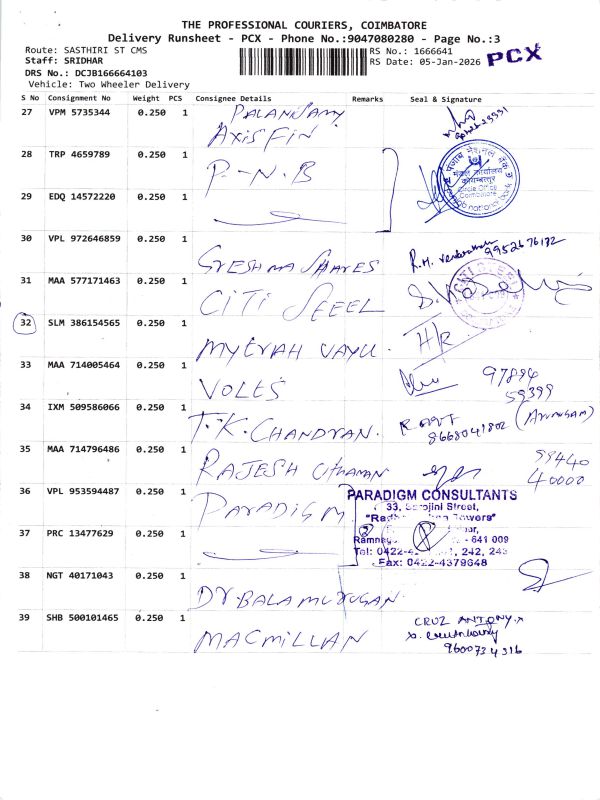 THE PROFESSIONAL COURIERS, COIMBATORE
Delivery Runsheet - PCX - Phone No.:9047080280 - Page No.:3
Route: SASTHIRI ST CMS
Staff: SRIDHAR
DRS No.: DCJB166664103
Vehicle: Two Wheeler Delivery
RS No.: 1666641
RS Date: 05-Jan-2026
PCX
S No Consignment No Weight PCS Consignee Details Remarks Seal & Signature
27 VPM 5735344 0.250 1 PALANISAMY
AXIS FIN
28 TRP 4659789 0.250 1 P-N.B
पंजाब नेशनल बैंक
मंडल कार्यालय
कोयम्बत्तूर
Circle Office
Coimbatore
national bank
29 EDQ 14572220 0.250 1
30 VPL 972646859 0.250 1 GRESHMA SHARES
9952676172
31 MAA 577171463 0.250 1 CITI STEEL
32 SLM 386154565 0.250 1 MYERAH VAYU
H/R
33 MAA 714005464 0.250 1 VOLTS
97894
59399
34 IXM 509586066 0.250 1 T.K. CHANDRAN.
8668041802 (ARUMUGAM)
35 MAA 714796486 0.250 1 RAJESH Uthaman
99440
40000
36 VPL 953594487 0.250 1 PARADIGM
PARADIGM CONSULTANTS
33, Sarojini Street,
Towers"
- 641 009
Tel: 0422-4 242, 243
Fax: 0422-4379648
37 PRC 13477629 0.250 1
38 NGT 40171043 0.250 1 DR. BALAMURUGAN
39 SHB 500101465 0.250 1 MACMILLAN
CRUZ ANTONY.X
9600734316